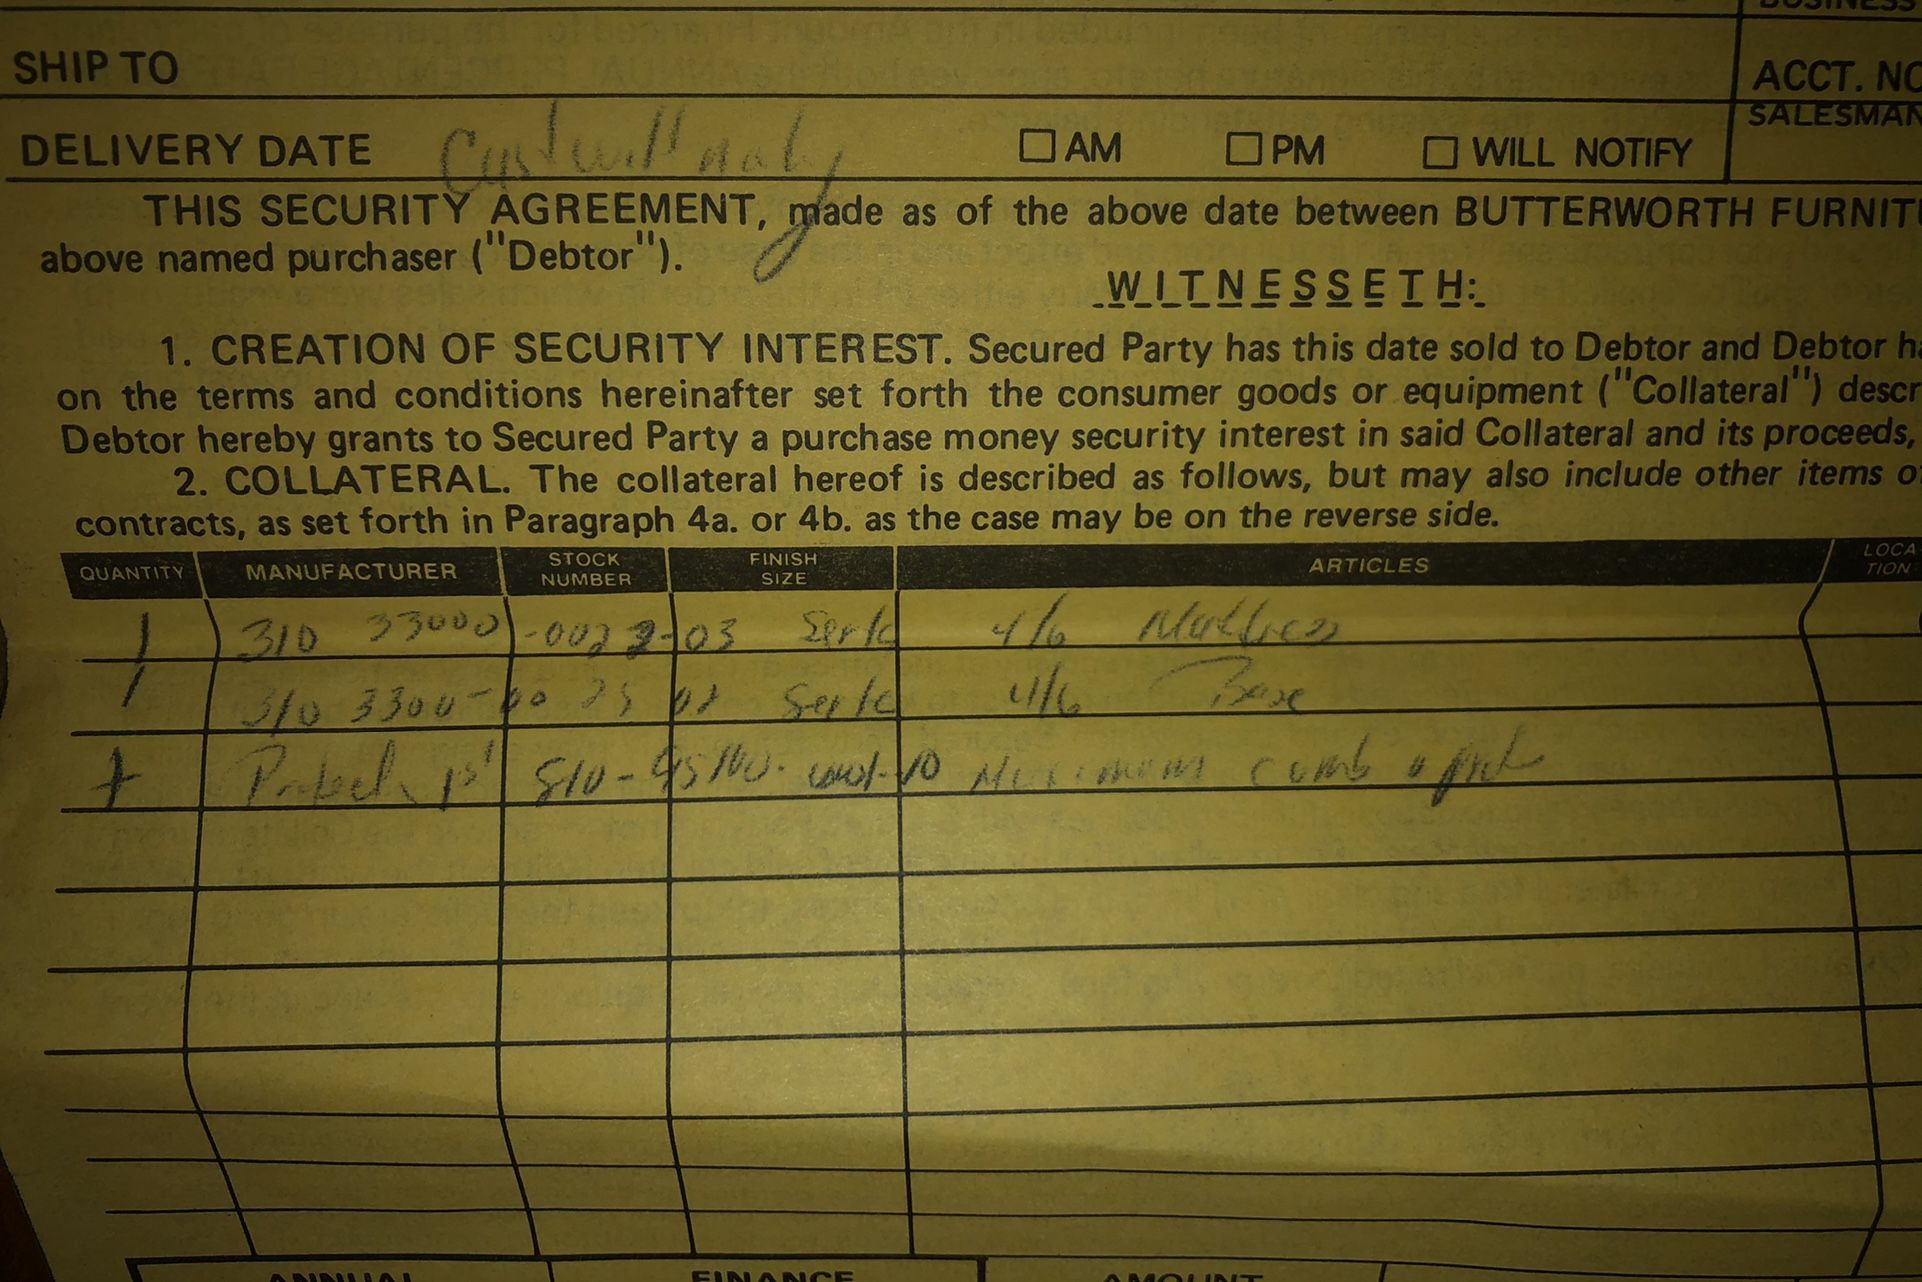 BUSINESS
SHIP TO
ACCT. NO
SALESMAN
DELIVERY DATE Cust will notify AM PM WILL NOTIFY
THIS SECURITY AGREEMENT, made as of the above date between BUTTERWORTH FURNIT
above named purchaser ("Debtor").
WITNESSETH:
1. CREATION OF SECURITY INTEREST. Secured Party has this date sold to Debtor and Debtor ha
on the terms and conditions hereinafter set forth the consumer goods or equipment ("Collateral") descr
Debtor hereby grants to Secured Party a purchase money security interest in said Collateral and its proceeds,
2. COLLATERAL. The collateral hereof is described as follows, but may also include other items o
contracts, as set forth in Paragraph 4a. or 4b. as the case may be on the reverse side.
QUANTITY MANUFACTURER STOCK NUMBER FINISH SIZE ARTICLES LOCA TION
1 310 33000 03 Serta 4/6 Mattress
1 310 3300 Serta 4/6 Base
1st 510
ANNUAL FINANCE AMOUNT